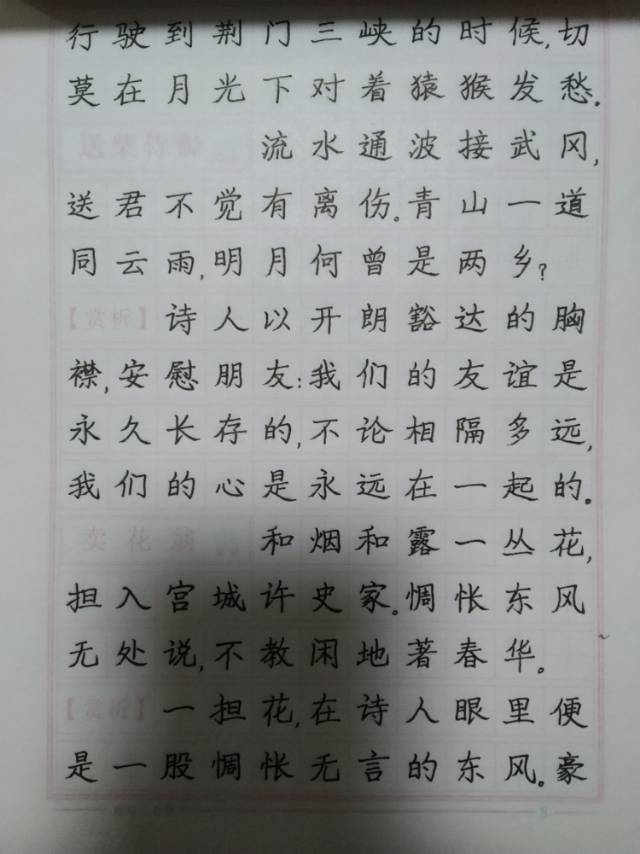 行驶到荆门三峡的时候,切
莫在月光下对着猿猴发愁。
送柴侍御 流水通波接武冈,
送君不觉有离伤。青山一道
同云雨,明月何曾是两乡?
【赏析】诗人以开朗豁达的胸
襟,安慰朋友:我们的友谊是
永久长存的,不论相隔多远,
我们的心是永远在一起的。
卖花翁 和烟和露一丛花,
担入宫城许史家。惆怅东风
无处说,不教闲地著春华。
【赏析】一担花,在诗人眼里便
是一股惆怅无言的东风。豪